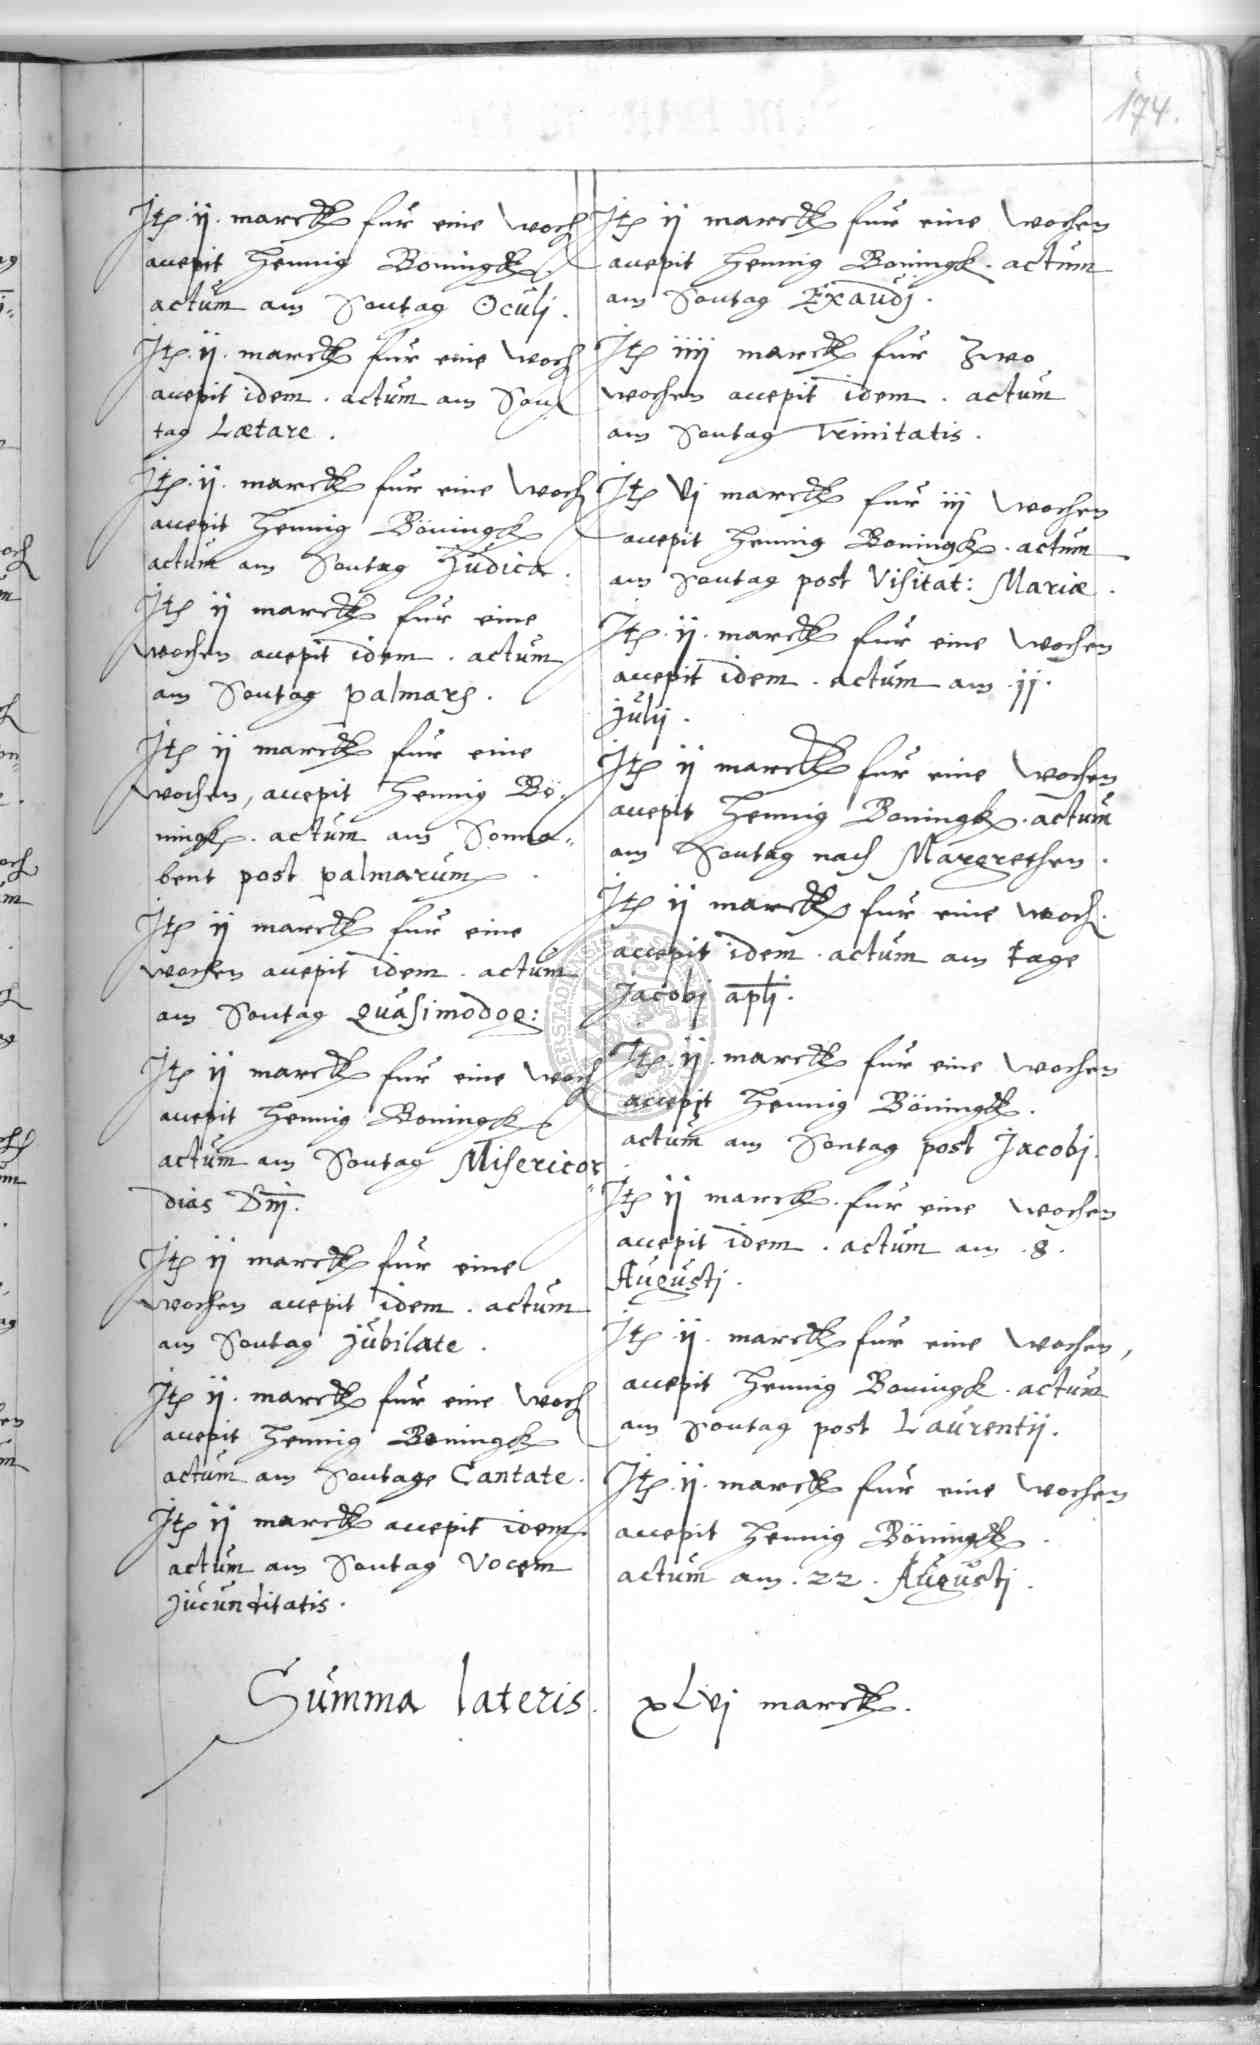 174.
Itp. ij. marckk fur eine woch
accepit Hennig Böningk
actum am Sontag Oculj.
Itp. ij. marckk fur eine woch
accepit idem. actum am Son
tag Lætare.
Itp. ij. marckk fur eine woch
accepit Hennig Böningk
actum am Sontag Judica.
Itp ij marckk fur eine
wochen accepit idem. actum
am Sontag palmarf.
Itp ij marckk fur eine
wochen, accepit Hennig Bö-
ningk. actum am Sonna„
bent post palmarum.
Itp ij marckk fur eine
wochen accepit idem. actum
am Sontag Quasimodog:
Itp ij marckk fur eine woch
accepit Hennig Boningk
actum am Sontag Misericor„
dias Dnj.
Itp ij marckk fur eine
wochen accepit idem. actum
am Sontag jubilate.
Itp ij. marckk fur eine woch
accepit Hennig Boningk
actum am Sontage Cantate.
Itp ij marckk accepit idem.
actum am Sontag Vocem
jucunditatis.
Itp ij marckk fur eine wochen
accepit Hennig Boningk. actum
am Sontag Exaudj.
Itp iiij marckk fur zwo
wochen accepit idem. actum
am Sontag Trinitatis.
Itp vj marckk fur iij wochen
accepit Hennig Boningk. actum
am Sontag post Visitat: Mariæ.
Itp. ij. marckk fur eine wochen
accepit idem. actum am .jj.
julij.
Itp ij marckk fur eine wochen
accepit Hennig Boningk. actum
am Sontag nach Margrethen.
Itp ij marckk fur eine woch.
accepit idem. actum am tage
Jacobj aplj.
Itp. ij. marckk fur eine wochen
accepit Hennig Böningk.
actum am Sontag post Jacobj.
Itp ij marckk. fur eine wochen
accepit idem. actum am .8.
Augustj.
Itp. ij. marckk fur eine wochen,
accepit Hennig Boningk. actum
am Sontag post Laurentij.
Itp. ij. marckk fur eine wochen
accepit Hennig Böningk.
actum am. 22. Augustj.
Summa lateris. xLvj marckk.